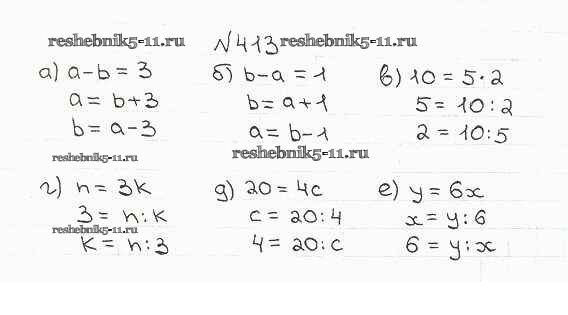 reshebnik5-11.ru №413 reshebnik5-11.ru
а) a-b=3
a=b+3
b=a-3
б) b-a=1
b=a+1
a=b-1
в) 10=5·2
5=10:2
2=10:5
reshebnik5-11.ru
reshebnik5-11.ru
г) n=3k
3=n:k
k=n:3
reshebnik5-11.ru
д) 20=4c
c=20:4
4=20:c
е) y=6x
x=y:6
6=y:x